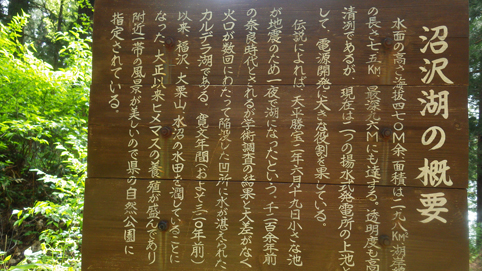 沼沢湖の概要
水面の高さ海抜四七〇M余面積は二、九八K㎡湖岸
の長さ七、五KM 最深九六Mにも達する。透明度も高
清湖であるが、現在は二つの揚水式発電所の上池
して、電源開発に大きな役割を果している。
伝説によれば、天平勝宝二年六月十九日小さな池
が地震のため一夜で湖になったという。千二百余年前
の奈良時代とされるが学術調査の結果と大差がなく
火口が数回にわたって陥没した凹所に水が湛えられた
カルデラ湖である。寛文年間(およそ三二〇年前)
以来、福沢、大栗山、水沼の水田を潤していることに
なった。大正以来ヒメマスの養殖が盛んであり
附近一帯の風景が美しいので県の自然公園に
指定されている。